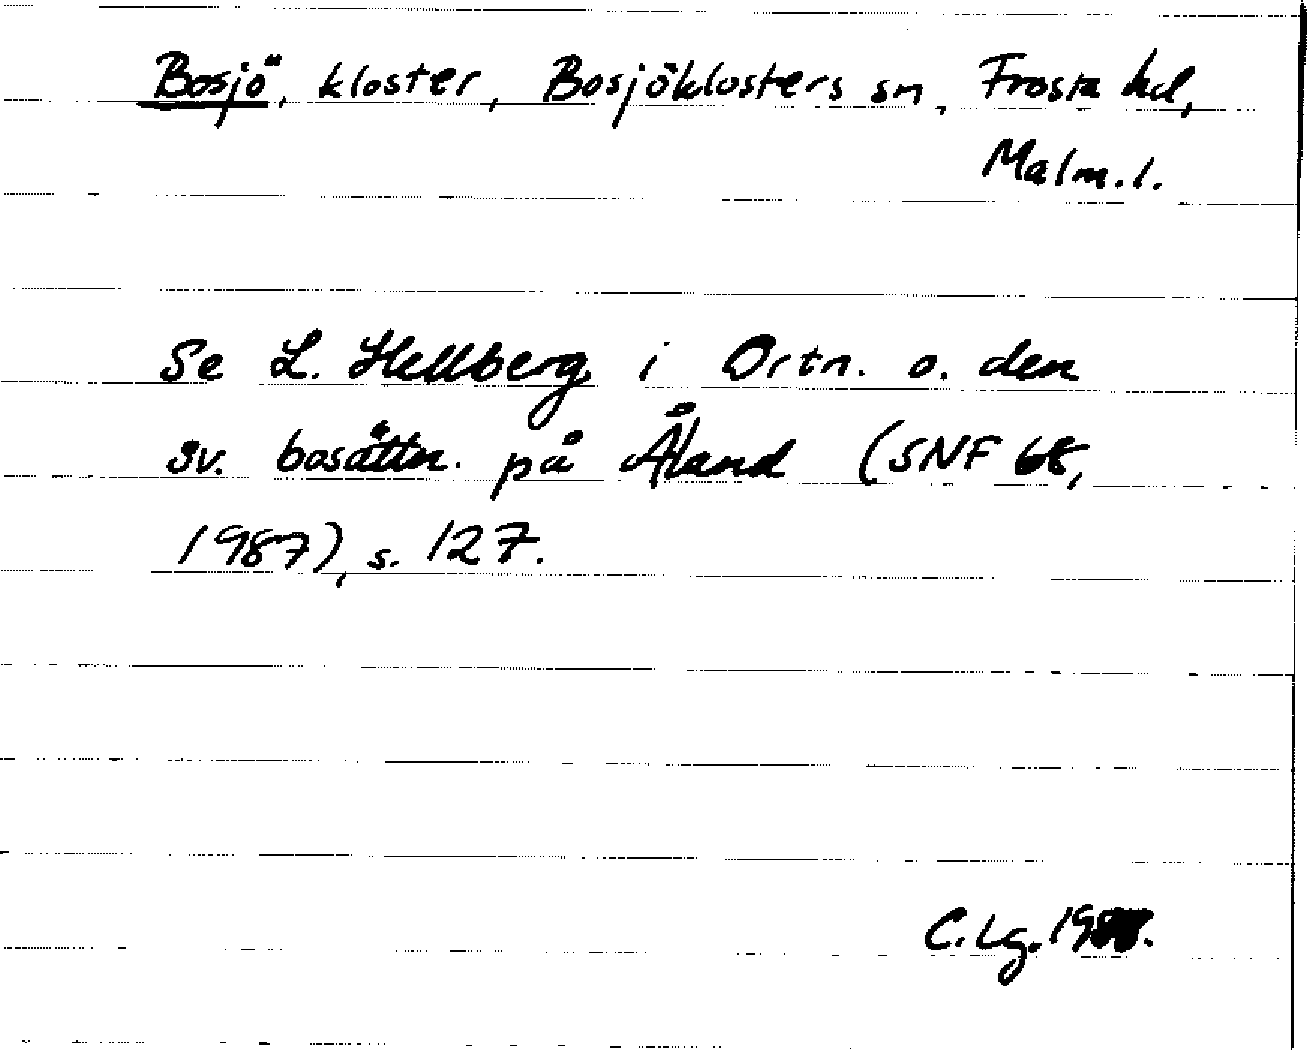 Bosjö, kloster, Bosjöklosters sn, Frosta hd,
Malm.l.
Se L. Hellberg i Ortn. o. den
sv. bosättn. på Åland (SNF 68,
1987), s. 127.
C. Lg.